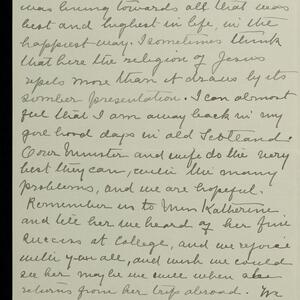 was living towards all that was
best and highest in life, in the
happiest way. I sometimes think
that here the religion of Jesus
repels more than it draws by its
somber presentation. I can almost
feel that I am away back in my
girl hood days in old Scotland.
Our Minister and wife do the very
best they can, with the many
problems, and we are hopeful.
Remember us to Miss Katherine
and tell her we heard of her fine
success at College, and we rejoice
with you all, and wish we could
see her maybe we will when she
returns from her trip abroad. We